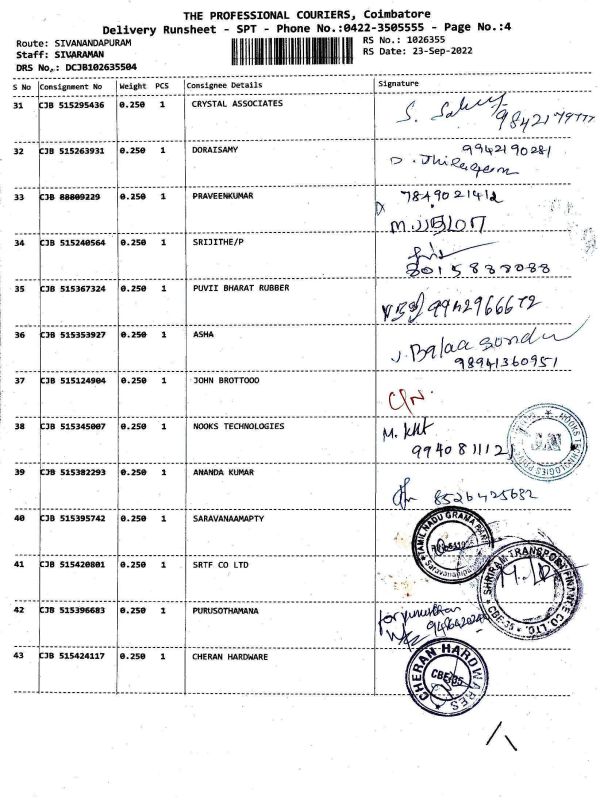 THE PROFESSIONAL COURIERS, Coimbatore
Delivery Runsheet - SPT - Phone No.:0422-3505555 - Page No.:4
Route: SIVANANDAPURAM
RS No.: 1026355
Staff: SIVARAMAN
RS Date: 23-Sep-2022
DRS No.: DCJB102635504
S No Consignment No Weight PCS Consignee Details Signature
31 CJB 515295436 0.250 1 CRYSTAL ASSOCIATES
32 CJB 515263931 0.250 1 DORAISAMY 9942190281
33 CJB 88809229 0.250 1 PRAVEENKUMAR 7849021412
34 CJB 515240564 0.250 1 SRIJITHE/P
8015888088
35 CJB 515367324 0.250 1 PUVII BHARAT RUBBER
9942966672
36 CJB 515353927 0.250 1 ASHA
98941360951
37 CJB 515124904 0.250 1 JOHN BROTTOOO
C/N.
38 CJB 515345007 0.250 1 NOOKS TECHNOLOGIES M.
994081112
NOOKS TECHNOLOGIES
39 CJB 515382293 0.250 1 ANANDA KUMAR
8526425682
40 CJB 515395742 0.250 1 SARAVANAAMAPTY
TAMIL NADU GRAMA BANK
41 CJB 515420801 0.250 1 SRTF CO LTD
SHRIRAM TRANSPORT FINANCE CO. LTD.
CBE-35
42 CJB 515396683 0.250 1 PURUSOTHAMANA
43 CJB 515424117 0.250 1 CHERAN HARDWARE
CHERAN HARDWARES
CBE-35